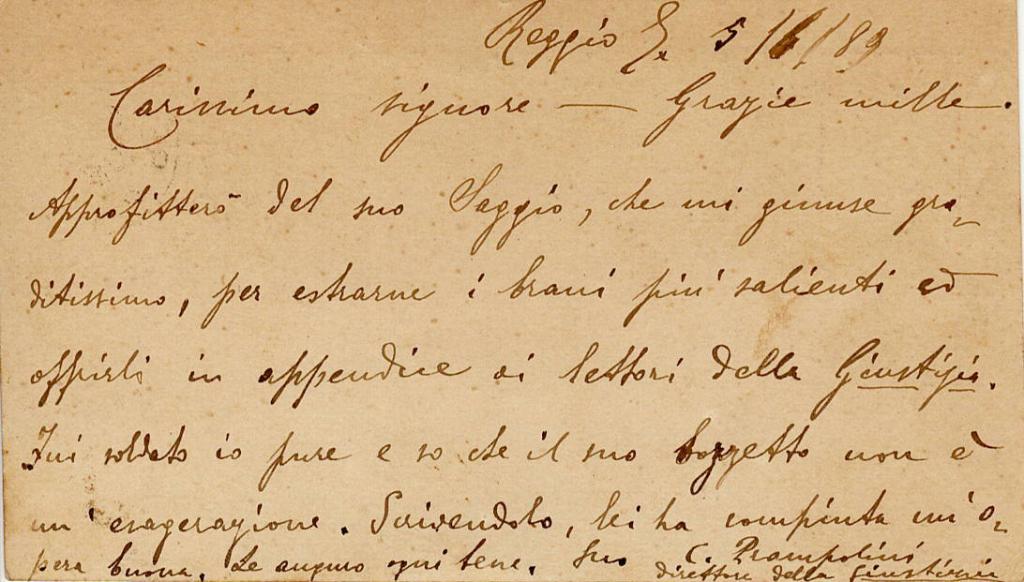 Reggio E. 5/6/89
Carissimo signore — Grazie mille.
Approfitterò del suo Saggio, che mi giunse gra-
ditissimo, per estrarne i brani più salienti ed
offrirli in appendice ai lettori della Giustizia.
Fui soldato io pure e so che il suo bozzetto non è
un' esagerazione. Scrivendolo, lei ha compiuta un' o-
pera buona. Le auguro ogni bene. Suo C. Prampolini
direttore della Giustizia